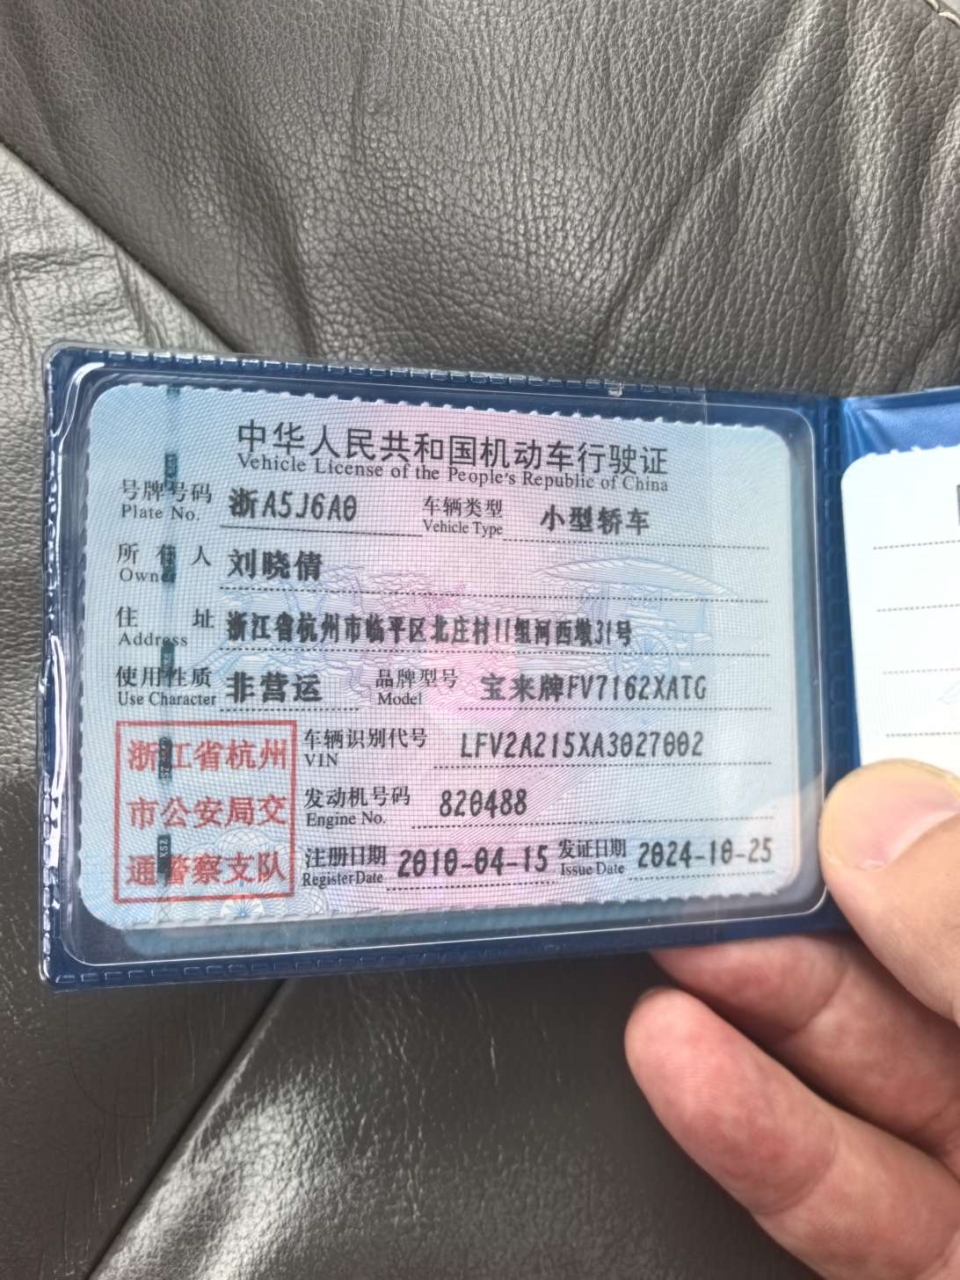 中华人民共和国机动车行驶证
Vehicle License of the People's Republic of China
号牌号码 浙A5J6A0 车辆类型 小型轿车
Plate No. Vehicle Type
所有人 刘晓倩
Owner
住址 浙江省杭州市临平区北庄村11组河西墩31号
Address
使用性质 非营运 品牌型号 宝来牌FV7162XATG
Use Character Model
浙江省杭州
市公安局交
通警察支队
车辆识别代号 LFV2A215XA3027002
VIN
发动机号码 820488
Engine No.
注册日期 2010-04-15 发证日期 2024-10-25
Register Date Issue Date